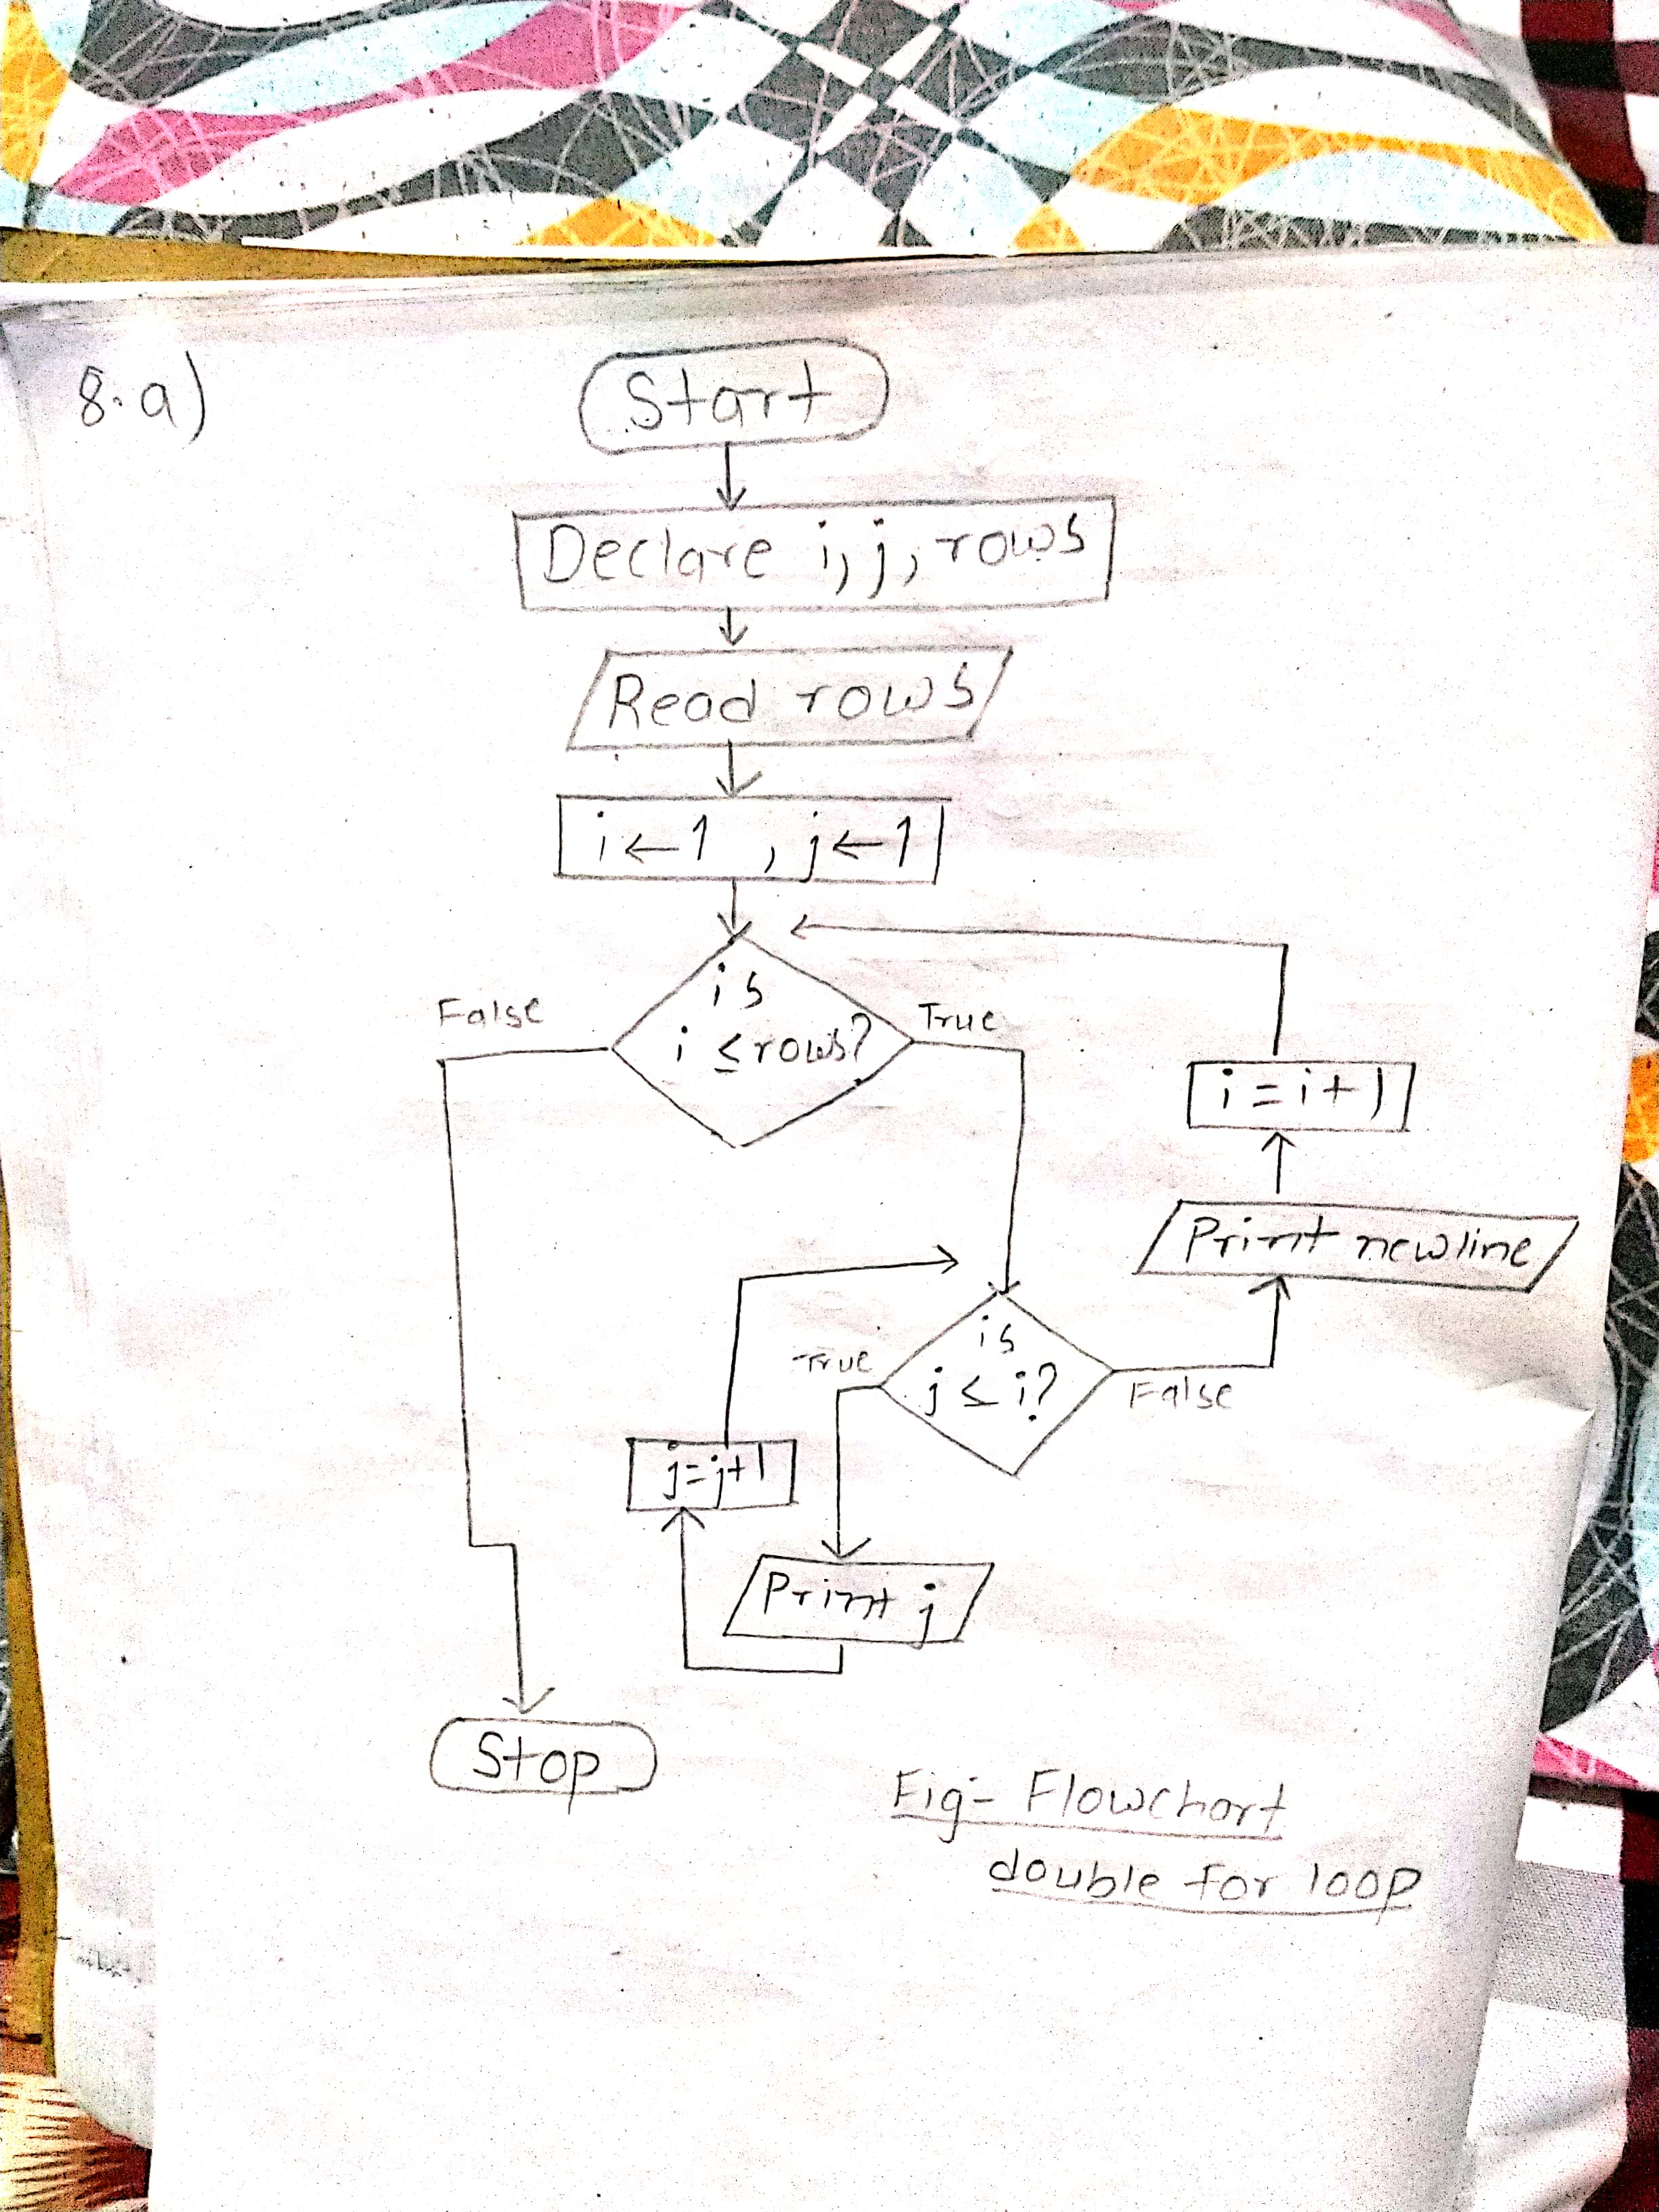 8.a)
Start
Declare i, j, rows
Read rows
i ← 1 , j ← 1
is
i ≤ rows?
False
True
i = i + 1
Print newline
is
j ≤ i?
True
False
j = j + 1
Print j
Stop
Fig- Flowchart
double for loop